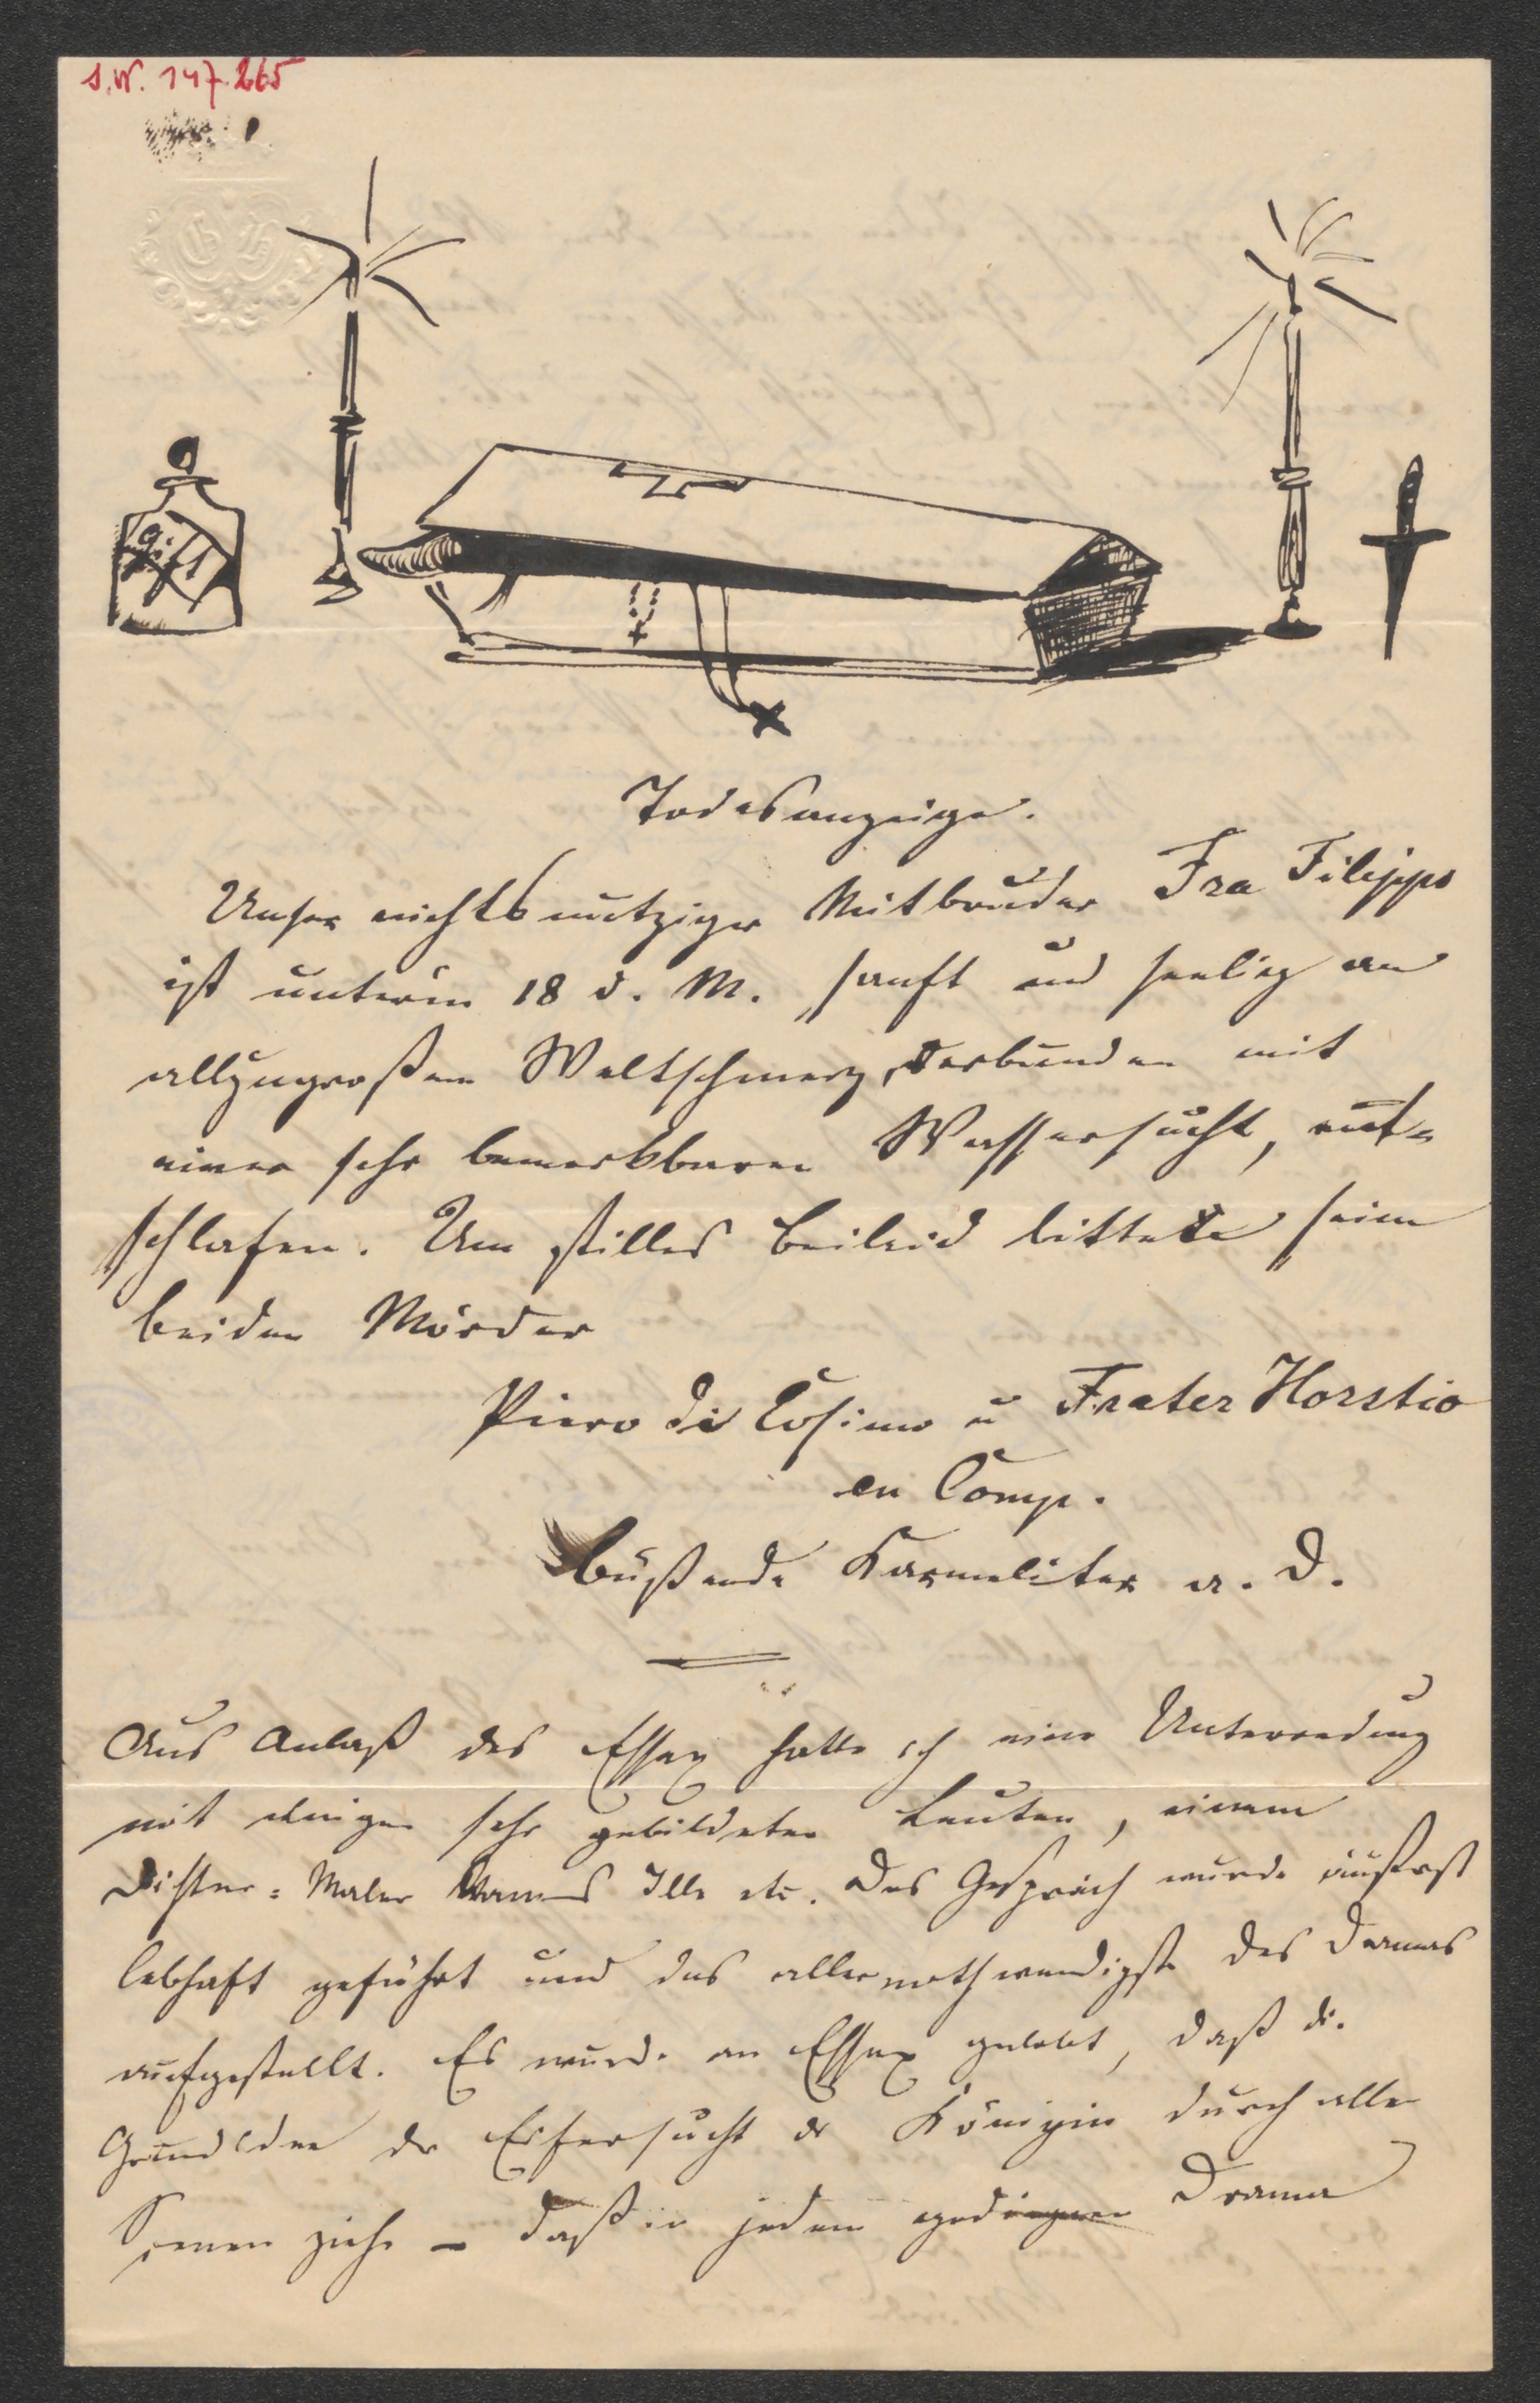 J.N. 147.265
Gift
Todesanzeige.
Unser nichtsnutziger Mitbruder Fra Filippo
ist unterm 18 d. M. sanft und seelig an
allzugroßem Weltschmerz, verbunden mit
einer sehr bemerkbaren Wassersucht, ent-
schlafen. Um stilles Beileid bittet seine
beiden Mörder
Piero di Cosimo u Frater Horstio
en Comp.
büßende Karmeliter a. D.
Aus Anlaß des Essex hatte ich eine Unterredung
mit einigen sehr gebildeten Leuten, einem
Dichter-Maler Namens Ille etc. Das Gespräch wurde äußerst
lebhaft geführt und das allernothwendigste des Dramas
aufgestellt. Es wurde an Essex gelobt, daß die
Grundidee der Eifersucht der Königin durch alle
Scenen ziehe – daß in jedem Drama